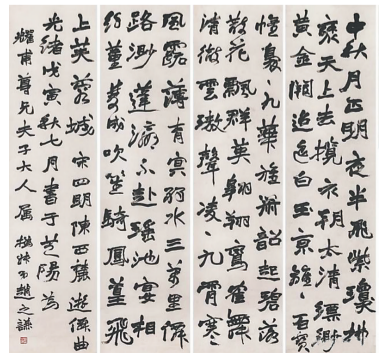 中秋月正明夜半飛紫瓊
天上去攬衣朝太清縹緲
黃金闕迢遙白玉京百寶
幢九華旌韶起碧落
散花飄群英翱翔鸞雀舞
清徹雲璈聲凌九霄寒
風露薄青冥弱水三萬里僊
路渺蓬瀛不赴瑤池宴相
約董雙成吹笙騎鳳皇飛
上芙蓉城 宋四明陳西麓遊僊曲
光緒戊寅秋七月書于芝陽為
耀甫尊兄夫子大人屬 撝叔弟趙之謙